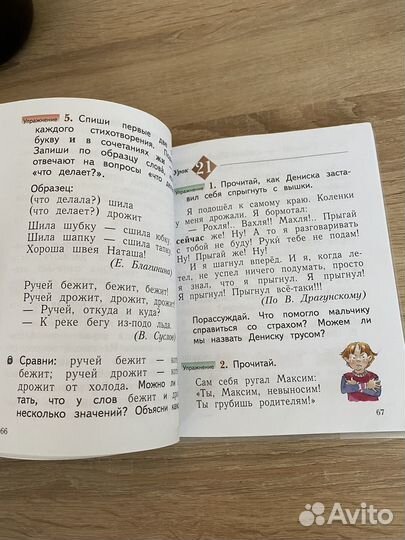 Упражнение 5. Спиши первые два
каждого стихотворения.
букву и в сочетаниях жи
Запиши по образцу слова,
отвечают на вопросы «что
«что делает?».
Образец:
(что делала?) шила
(что делает?) дрожит
Шила шубку — сшила юбку,
Шила шапку — сшила
Хороша швея Наташа!
(Е. Благинина)
Ручей бежит, бежит, бежит!
Ручей дрожит, дрожит, дрожит!
— Ручей, откуда и куда?
— К реке бегу из-подо льда.
(В. Суслов)
Сравни: ручей бежит —
бежит; ручей дрожит —
дрожит от холода. Можно ли
тать, что у слов бежит и
несколько значений? Объясни
66
Урок 21
Упражнение 1. Прочитай, как Дениска заста-
вил себя спрыгнуть с вышки.
Я подошёл к самому краю. Коленки
у меня дрожали. Я бормотал:
— Рохля!.. Вахля!.. Махля!.. Прыгай
сейчас же! Ну! А то я разговаривать
с тобой не буду! Руки тебе не подам!
Ну! Прыгай же! Ну!
И я шагнул вперёд. И, когда ле-
тел, не успел ничего подумать, просто
я знал, что я прыгнул! Я прыгнул!
Прыгнул! Прыгнул всё-таки!!!
(По В. Драгунскому)
Порассуждай. Что помогло мальчику
справиться со страхом? Можем ли
мы назвать Дениску трусом?
Упражнение 2. Прочитай.
Сам себя ругал Максим:
«Ты, Максим, невыносим!
Ты грубишь родителям!
67
Avito